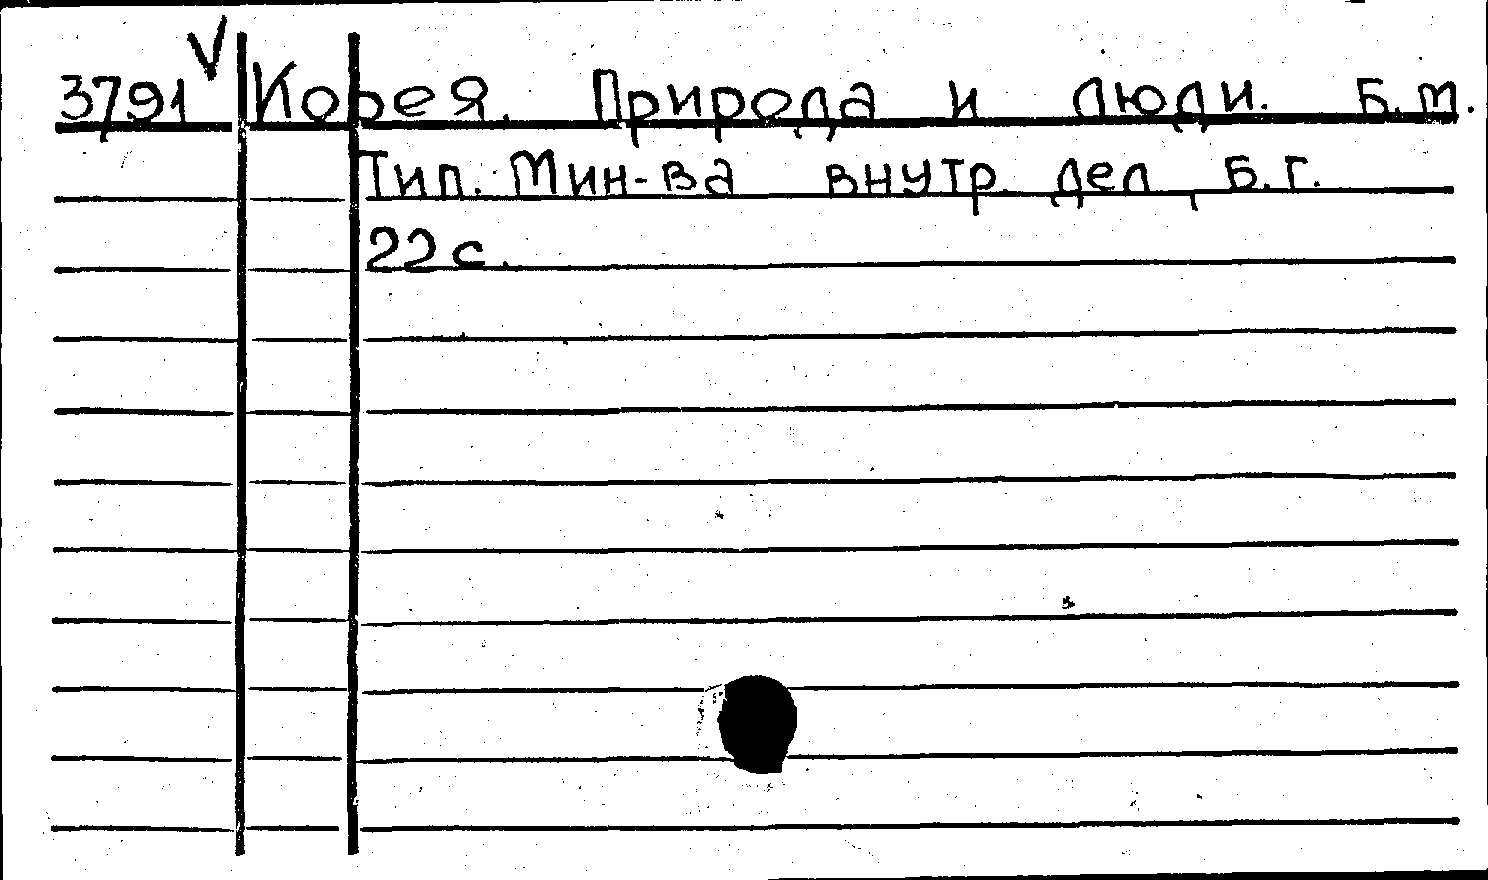 3791 V Корея. Природа и люди. Б.м.
Тип. Мин-ва внутр. дел, Б.г.
22 с.